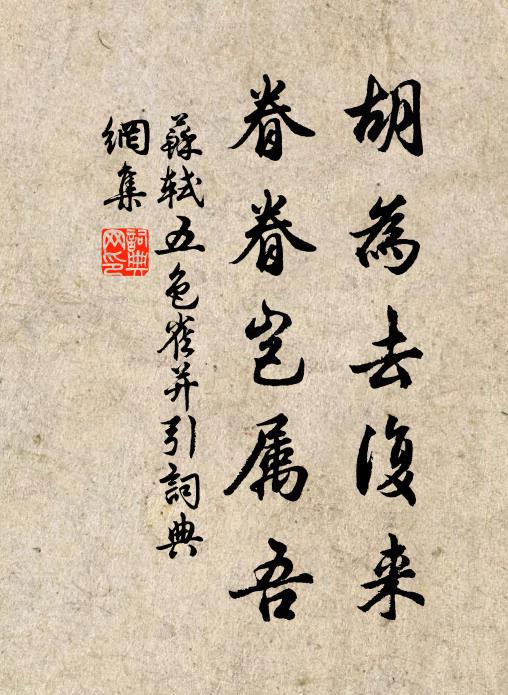 胡為去復来
眷眷岂属吾
蘇軾五色雀并引詞典
網集
詞典
网印